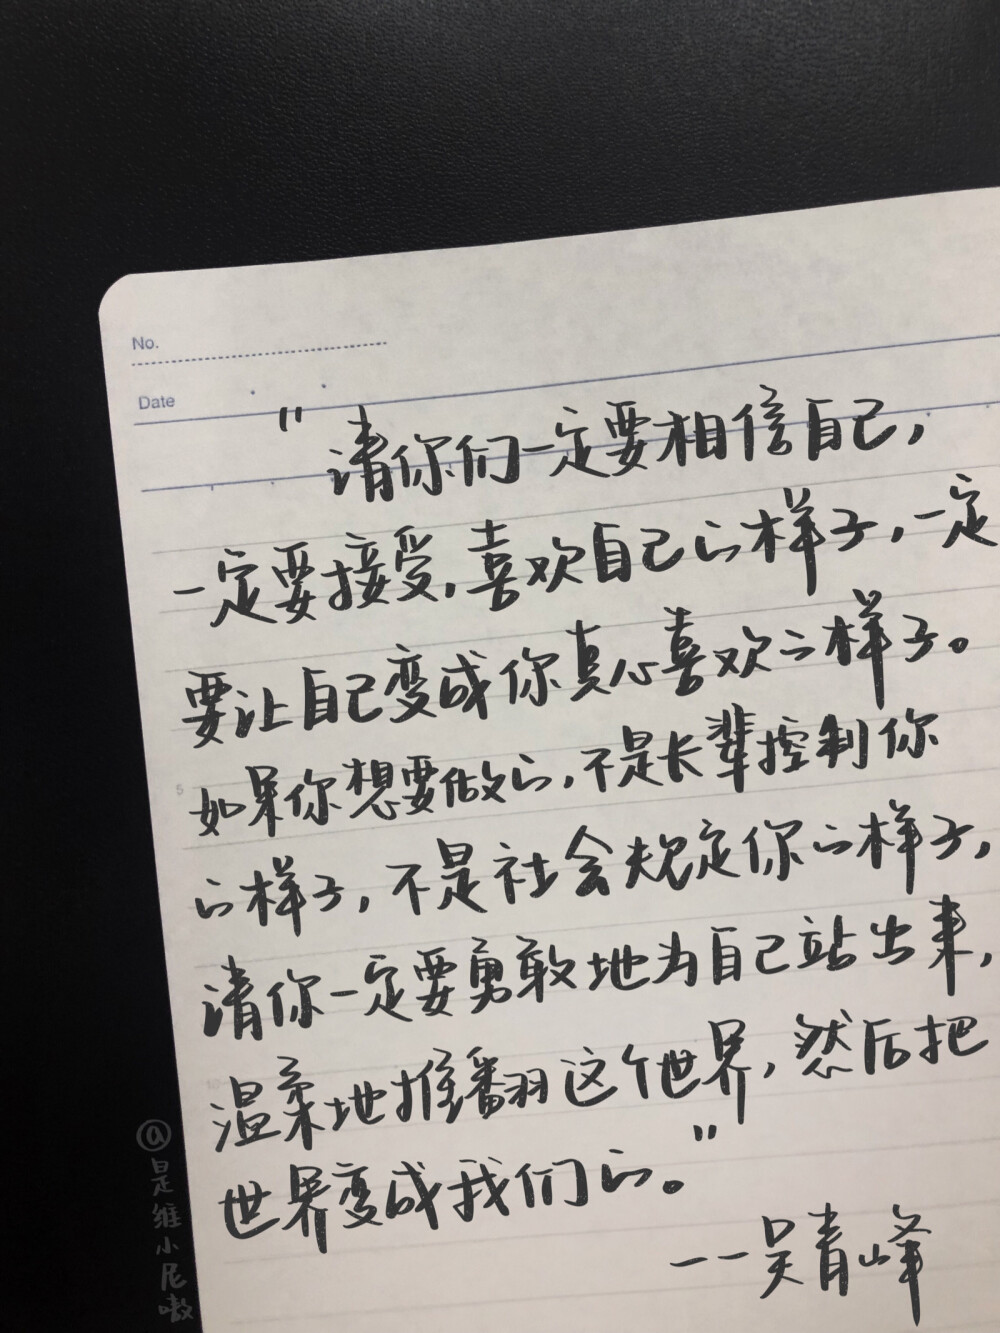 No.
Date
"请你们一定要相信自己,
一定要接受,喜欢自己的样子,一定
要让自己变成你真心喜欢的样子。
如果你想要做的,不是长辈控制你
5
的样子,不是社会规定你的样子,
请你一定要勇敢地为自己站出来,
温柔地推翻这个世界,然后把
10
世界变成我们的。"
——吴青峰
@是维小尼嗷